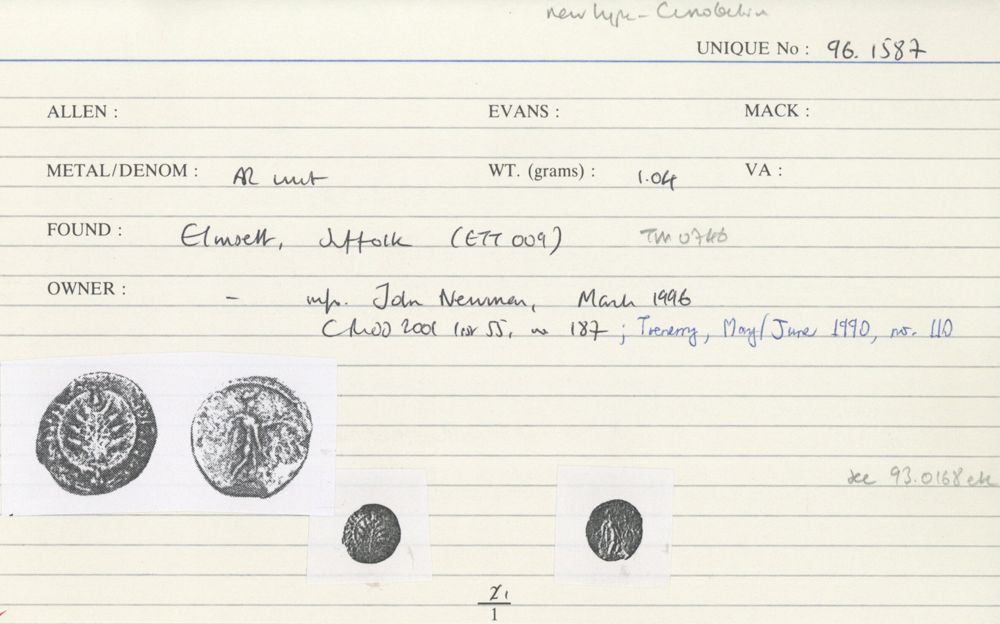 new type - Cunobelin
UNIQUE No : 96. 1587
ALLEN : EVANS : MACK :
METAL/DENOM : AR unit WT. (grams) : 1.04 VA :
FOUND : Elmsett, Suffolk (ETT 009) TM 0746
OWNER : - info. John Newman, March 1996
CR 2001 list 55, no 187 ; Trenerry, May/June 1990, no. 110
see 93.0168 etc
1
1